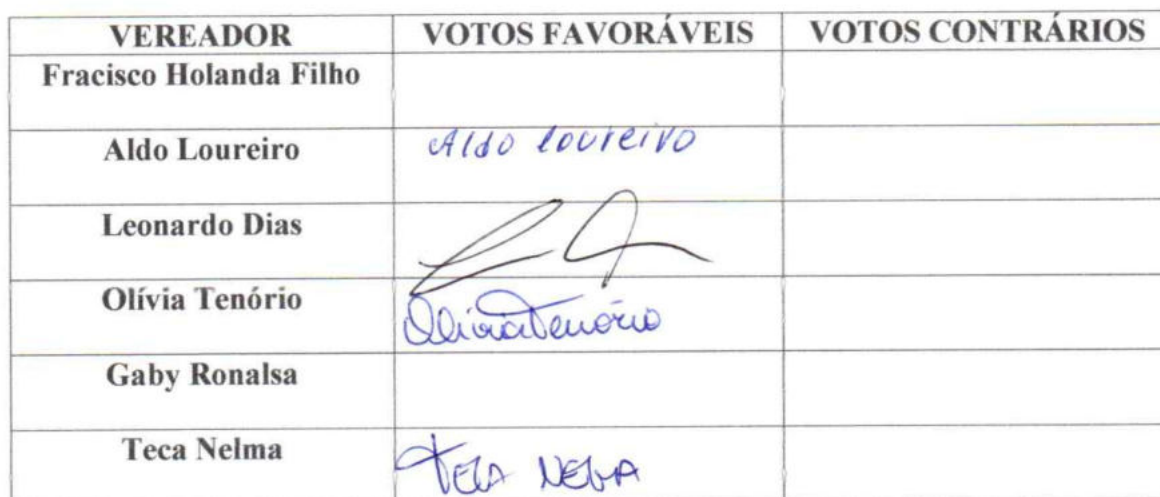 VEREADOR VOTOS FAVORÁVEIS VOTOS CONTRÁRIOS
Fracisco Holanda Filho
Aldo Loureiro Aldo Loureiro
Leonardo Dias
Olívia Tenório Olívia Tenório
Gaby Ronalsa
Teca Nelma TECA NELMA